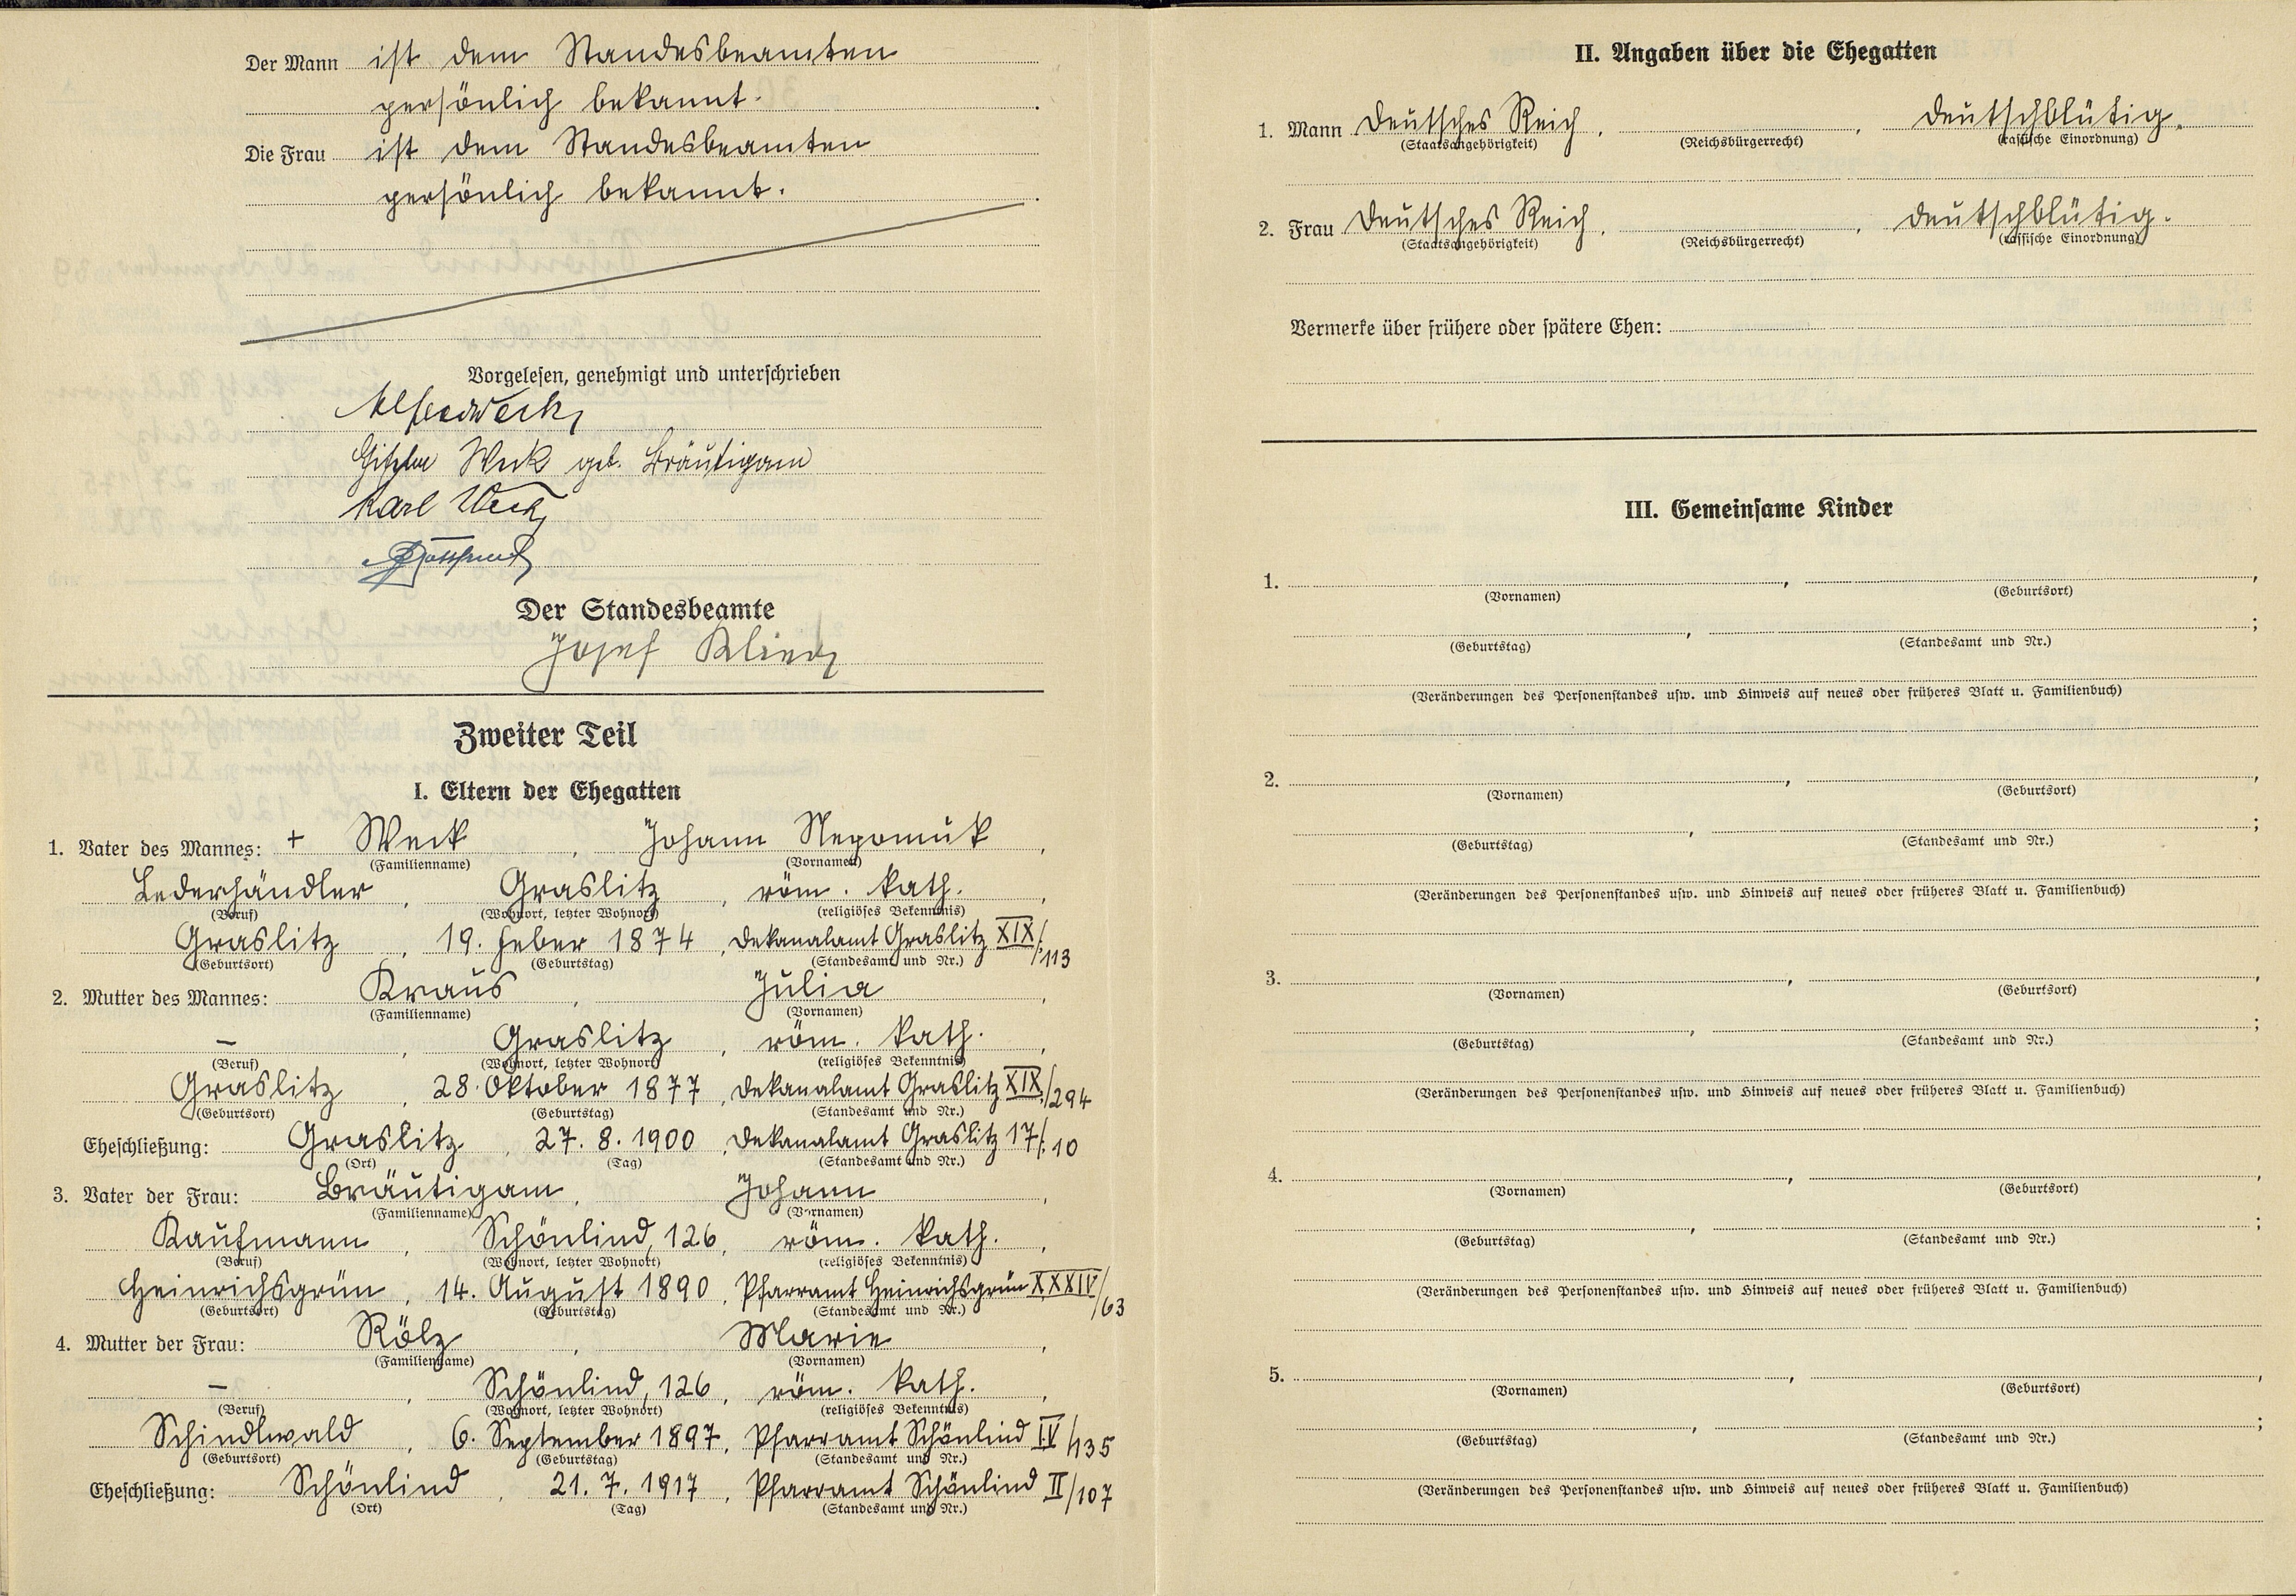 Der Mann ist dem Standesbeamten
persönlich bekannt.
Die Frau ist dem Standesbeamten
persönlich bekannt.
Vorgelesen, genehmigt und unterschrieben
Alfred Weck
Gisela Weck geb. Bräutigam
Karl Weck
Der Standesbeamte
Josef
Zweiter Teil
I. Eltern der Ehegatten
1. Vater des Mannes: + Weck, Johann Nepomuk,
(Familienname) (Vornamen)
Lederhändler, Graslitz, röm. kath.,
(Beruf) (Wohnort, letzter Wohnort) (religiöses Bekenntnis)
Graslitz, 19. Feber 1874, Dekanalamt Graslitz XIX/113
(Geburtsort) (Geburtstag) (Standesamt und Nr.)
2. Mutter des Mannes: Kraus, Julia,
(Familienname) (Vornamen)
–, Graslitz, röm. kath.,
(Beruf) (Wohnort, letzter Wohnort) (religiöses Bekenntnis)
Graslitz, 28. Oktober 1877, Dekanalamt Graslitz XIX/294
(Geburtsort) (Geburtstag) (Standesamt und Nr.)
Eheschließung: Graslitz, 27. 8. 1900, Dekanalamt Graslitz 17/10
(Ort) (Tag) (Standesamt und Nr.)
3. Vater der Frau: Bräutigam, Johann,
(Familienname) (Vornamen)
Kaufmann, Schönlind, 126, röm. kath.,
(Beruf) (Wohnort, letzter Wohnort) (religiöses Bekenntnis)
Heinrichsgrün, 14. August 1890, Pfarramt Heinrichsgrün XXXIV/63
(Geburtsort) (Geburtstag) (Standesamt und Nr.)
4. Mutter der Frau: Rölz, Marie,
(Familienname) (Vornamen)
–, Schönlind, 126, röm. kath.,
(Beruf) (Wohnort, letzter Wohnort) (religiöses Bekenntnis)
Schindlwald, 6. September 1897, Pfarramt Schönlind IV/135
(Geburtsort) (Geburtstag) (Standesamt und Nr.)
Eheschließung: Schönlind, 21. 7. 1917, Pfarramt Schönlind II/107
(Ort) (Tag) (Standesamt und Nr.)
II. Angaben über die Ehegatten
1. Mann Deutsches Reich, , deutschblütig.
(Staatsangehörigkeit) (Reichsbürgerrecht) (rassische Einordnung)
2. Frau Deutsches Reich, , deutschblütig.
(Staatsangehörigkeit) (Reichsbürgerrecht) (rassische Einordnung)
Vermerke über frühere oder spätere Ehen:
III. Gemeinsame Kinder
1. , ,
(Vornamen) (Geburtsort)
, ;
(Geburtstag) (Standesamt und Nr.)
(Veränderungen des Personenstandes usw. und Hinweis auf neues oder früheres Blatt u. Familienbuch)
2. , ,
(Vornamen) (Geburtsort)
, ;
(Geburtstag) (Standesamt und Nr.)
(Veränderungen des Personenstandes usw. und Hinweis auf neues oder früheres Blatt u. Familienbuch)
3. , ,
(Vornamen) (Geburtsort)
, ;
(Geburtstag) (Standesamt und Nr.)
(Veränderungen des Personenstandes usw. und Hinweis auf neues oder früheres Blatt u. Familienbuch)
4. , ,
(Vornamen) (Geburtsort)
, ;
(Geburtstag) (Standesamt und Nr.)
(Veränderungen des Personenstandes usw. und Hinweis auf neues oder früheres Blatt u. Familienbuch)
5. , ,
(Vornamen) (Geburtsort)
, ;
(Geburtstag) (Standesamt und Nr.)
(Veränderungen des Personenstandes usw. und Hinweis auf neues oder früheres Blatt u. Familienbuch)